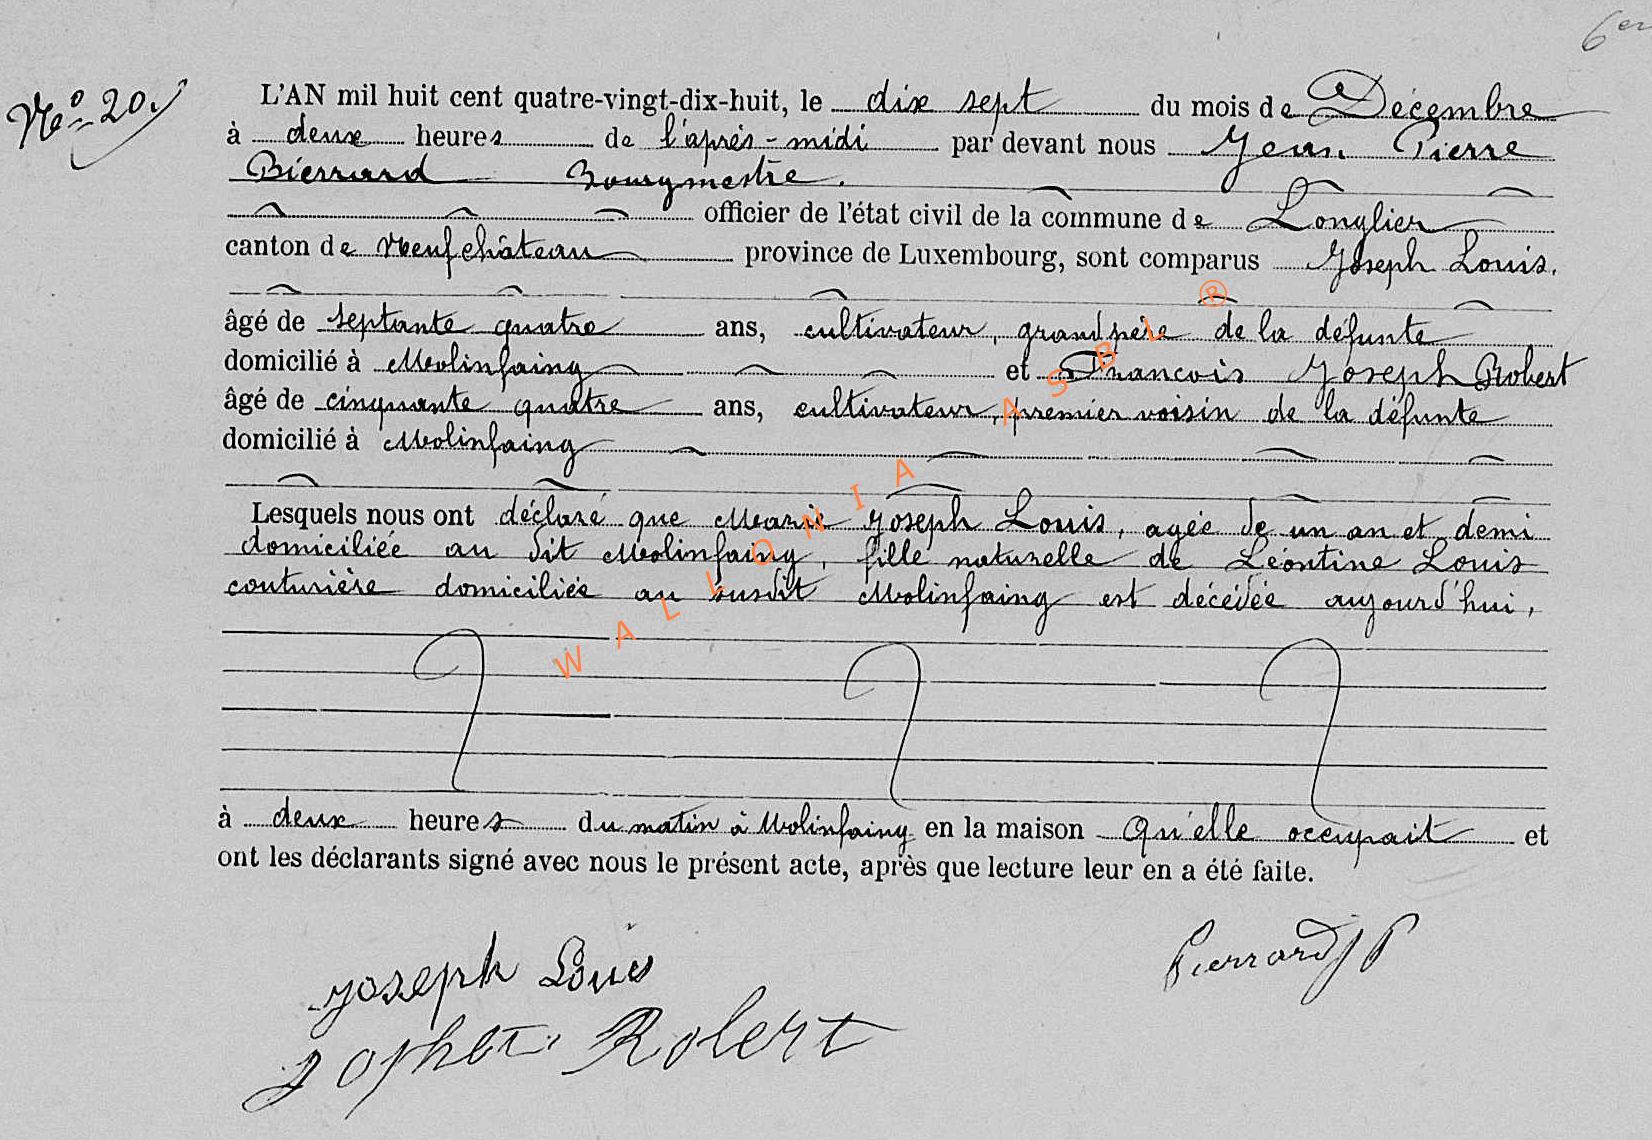 6er
No 20.
L'AN mil huit cent quatre-vingt-dix-huit, le dix sept du mois de Décembre
à deux heures de l'après-midi par devant nous Jean Pierre
Pierrard Bourgmestre.
officier de l'état civil de la commune de Longlier
canton de Neufchâteau province de Luxembourg, sont comparus Joseph Louis,
âgé de septante quatre ans, cultivateur, grand père de la défunte
domicilié à Molinfaing et Francois Joseph Robert
âgé de cinquante quatre ans, cultivateur, premier voisin de la défunte
domicilié à Molinfaing
Lesquels nous ont déclaré que Marie Joseph Louis, agée de un an et demi
domiciliée au dit Molinfaing, fille naturelle de Léontine Louis
couturière domiciliée au susdit Molinfaing est décédée aujourd'hui,
à deux heures du matin à Molinfaing en la maison qu'elle occupait et
ont les déclarants signé avec nous le présent acte, après que lecture leur en a été faite.
Joseph Louis
Pierrard JP
Robert
WALLONIA ASBL ®